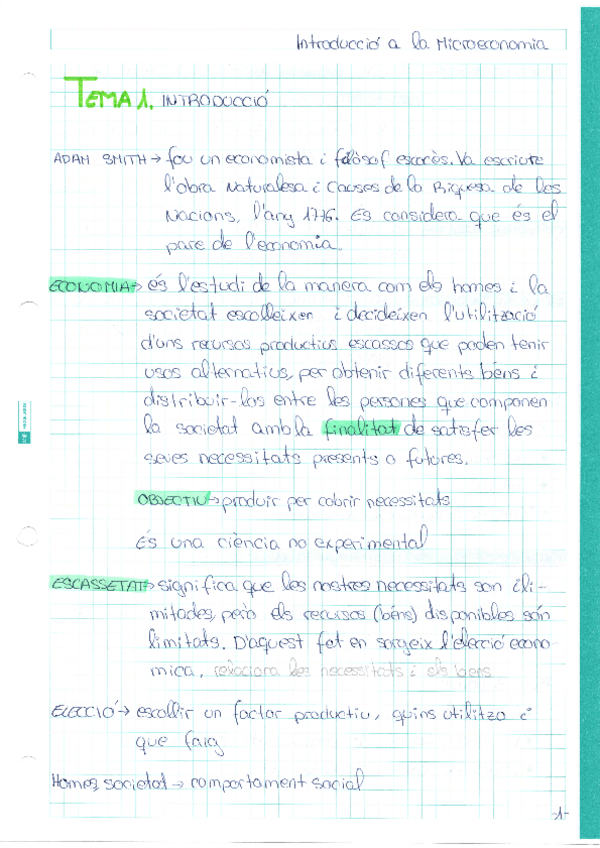 Introducció a la Microeconomia
TEMA 1. INTRODUCCIÓ
ADAM SMITH → fou un economista i filòsof escocès. Va escriure
l'obra Naturalesa i Causes de la Riquesa de les
Nacions, l'any 1776. Es considera que és el
pare de l'economia.
ECONOMIA → és l'estudi de la manera com els homes i la
societat escolleixen i decideixen l'utilització
d'uns recursos productius escassos que poden tenir
usos alternatius, per obtenir diferents béns i
distribuir-los entre les persones que componen
la societat amb la finalitat de satisfer les
seves necessitats presents o futures.
OBJECTIU → produir per cobrir necessitats
És una ciència no experimental
ESCASSETAT → significa que les nostres necessitats son ili-
mitades, però els recursos (béns) disponibles són
limitats. D'aquest fet en sorgeix l'elecció econo-
mica, relaciona les necessitats i els bens
ELECCIÓ → escollir un factor productiu, quins utilitzo i
que faig
Homes societat → comportament social
-1-